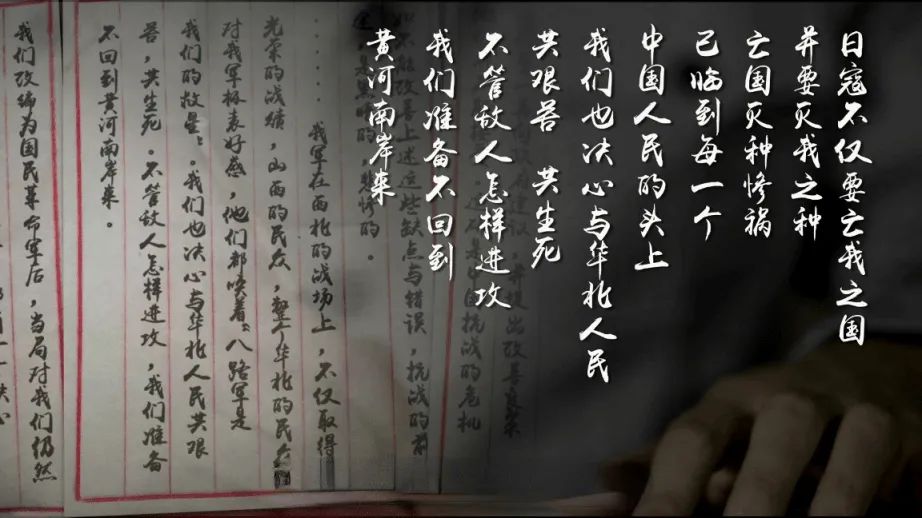 日寇不仅要亡我之国
并要灭我之种
亡国灭种惨祸
已临到每一个
中国人民的头上
我们也决心与华北人民
共艰苦 共生死
不管敌人怎样进攻
我们准备不回到
黄河南岸来
抗战的危机
不能改善上述这些缺点与错误，抗战的前
悲惨的。
……我军在西北的战场上，不仅取得
光荣的战绩，山西的民众，整个华北的民众
对我军极表好感，他们都唤着“八路军是
我们的救星”。我们也决心与华北人民共艰
苦，共生死。不管敌人怎样进攻，我们准备
不回到黄河南岸来。
我们改编为国民革命军后，当局对我们仍然